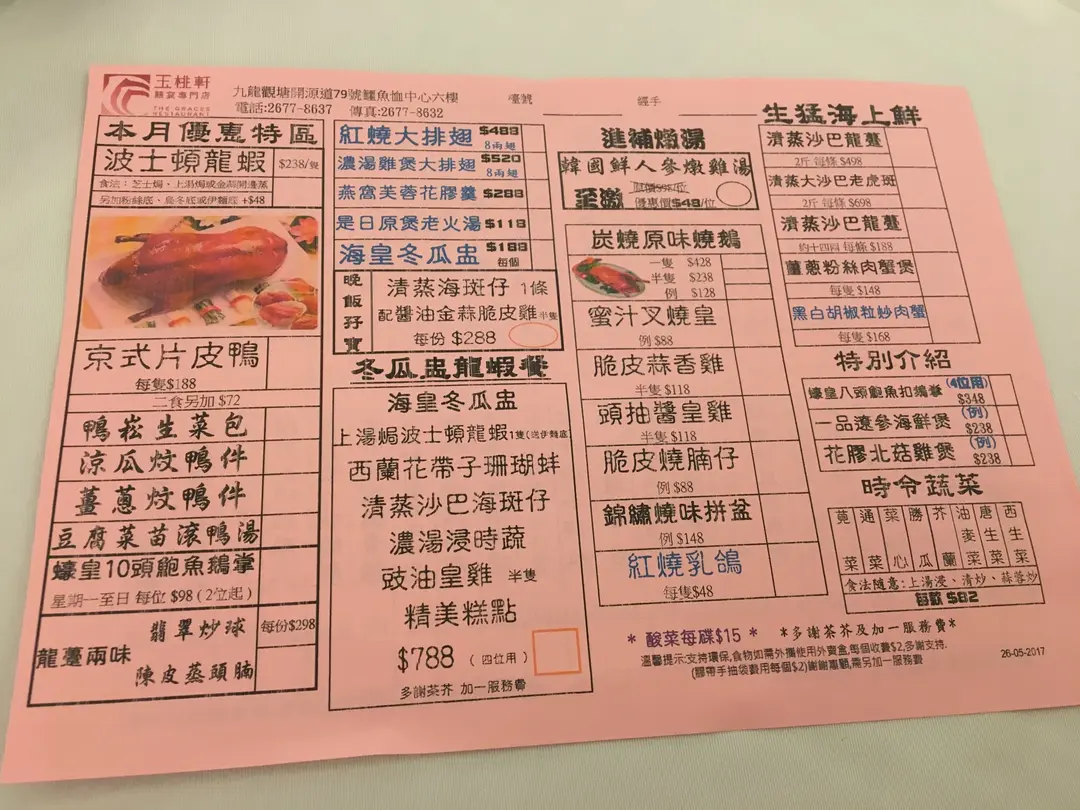 玉桃軒
囍宴專門店
THE GRACES
RESTAURANT
九龍觀塘開源道79號鱷魚恤中心六樓
電話:2677-8637 傳真:2677-8632
檯號
經手
本月優惠特區
波士頓龍蝦 $238/隻
食法：芝士焗、上湯焗或金蒜開邊蒸
另加粉絲底、烏冬底或伊麵底 +$48
京式片皮鴨
每隻$188
二食另加 $72
鴨崧生菜包
涼瓜炆鴨件
薑蔥炆鴨件
豆腐菜苗滾鴨湯
蠔皇10頭鮑魚鵝掌
星期一至日 每位 $98 (2位起)
龍躉兩味
翡翠炒球
陳皮蒸頭腩
每份$298
紅燒大排翅 $488
8兩翅
濃湯雞煲大排翅 $520
8兩翅
燕窩芙蓉花膠羹 $288
是日原煲老火湯 $118
海皇冬瓜盅 $188
每個
晚飯孖寶
清蒸海斑仔 1條
配醬油金蒜脆皮雞 半隻
每份 $288
冬瓜盅龍蝦餐
海皇冬瓜盅
上湯焗波士頓龍蝦1隻(送伊麵底)
西蘭花帶子珊瑚蚌
清蒸沙巴海斑仔
濃湯浸時蔬
豉油皇雞 半隻
精美糕點
$788 (四位用)
多謝茶芥 加一服務費
進補燉湯
韓國鮮人參燉雞湯
至激
優惠價$48/位
炭燒原味燒鵝
一隻 $428
半隻 $238
例 $128
蜜汁叉燒皇
例 $88
脆皮蒜香雞
半隻 $118
頭抽醬皇雞
半隻 $118
脆皮燒腩仔
例 $88
錦繡燒味拼盆
例 $148
紅燒乳鴿
每隻$48
生猛海上鮮
清蒸沙巴龍躉
2斤 每條 $498
清蒸大沙巴老虎班
2斤 每條 $698
清蒸沙巴龍躉
約十四両 每條 $188
薑蔥粉絲肉蟹煲
每隻 $148
黑白胡椒粒炒肉蟹
每隻 $168
特別介紹
蠔皇八頭鮑魚扣鵝掌 (4位用)
$348
一品遼參海鮮煲 (例)
$238
花膠北菇雞煲 (例)
$238
時令蔬菜
莧菜 通菜 菜心 勝瓜 芥蘭 油麥菜 唐生菜 西生菜
食法隨意:上湯浸、清炒、蒜蓉炒
每款 $82
* 酸菜每碟$15 *
*多謝茶芥及加一服務費*
溫馨提示:支持環保,食物如需外攜使用外賣盒,每個收費$2,多謝支持.
(膠帶手抽袋費用每個$2)謝謝惠顧,需另加一服務費
26-05-2017